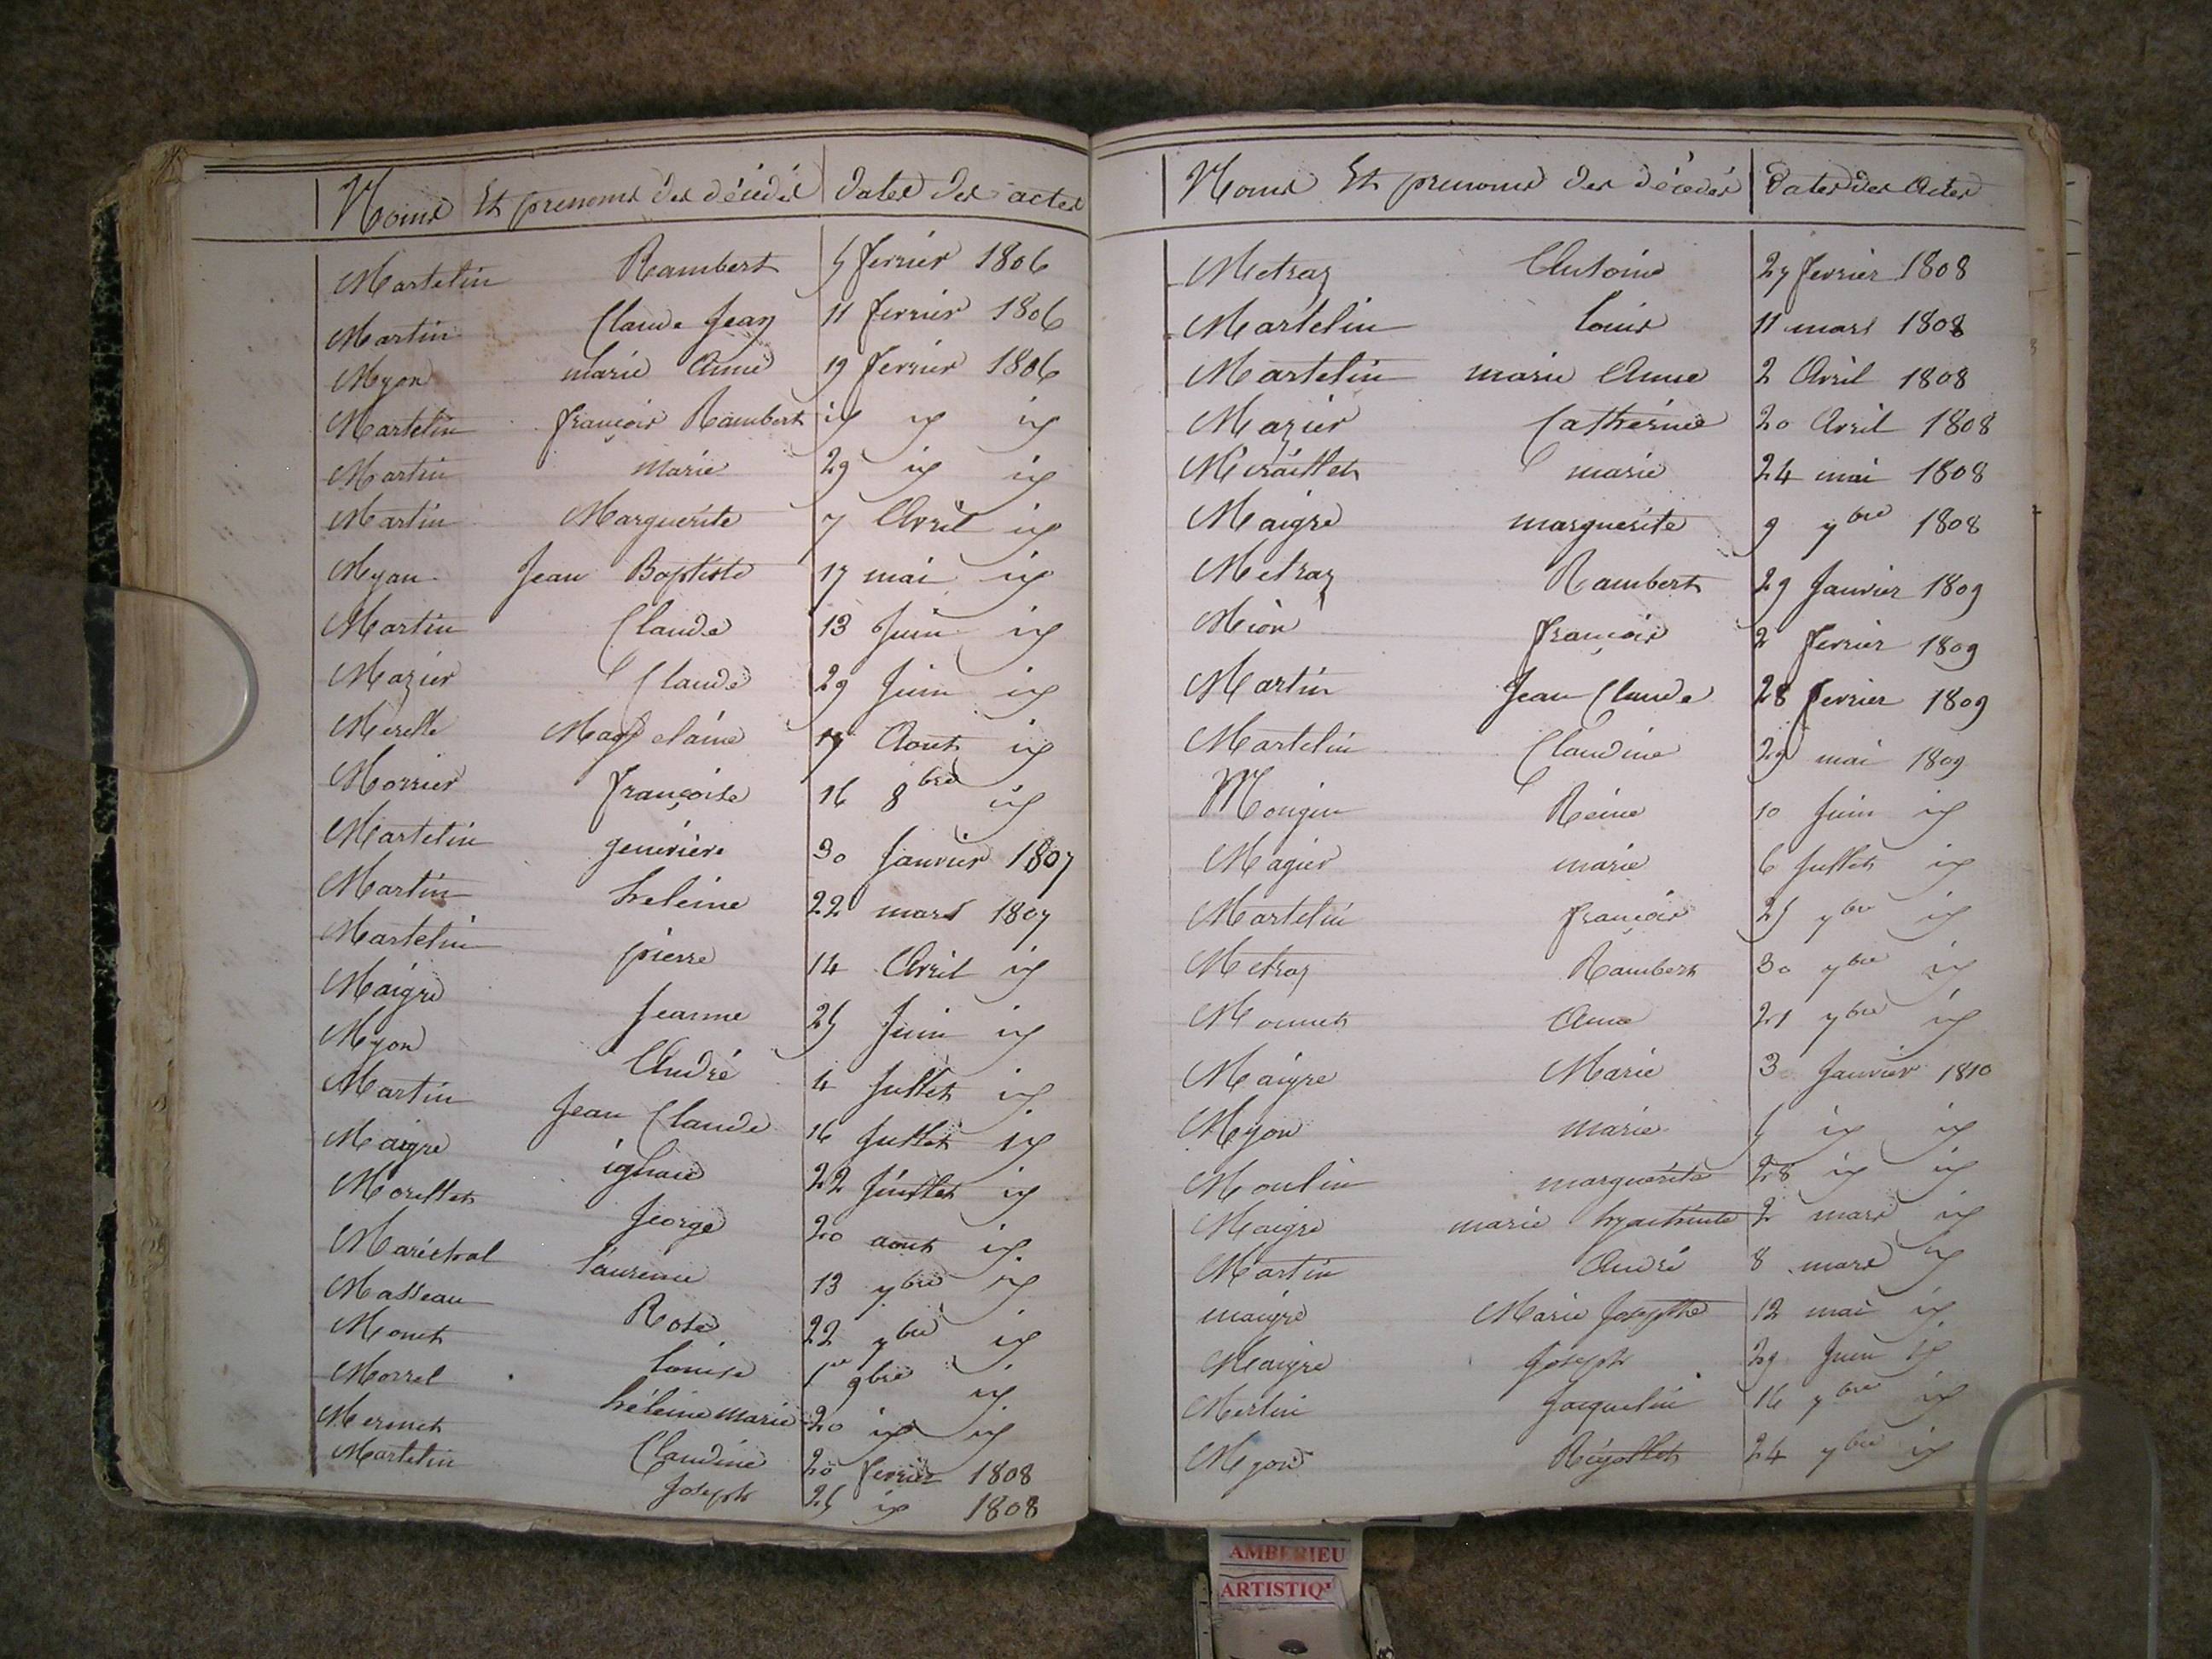 Noms Et prenoms des décédés Dates des actes
Martelin Rambert 5 fevrier 1806
Martin Claude Jean 11 fevrier 1806
Myon marie Anne 19 fevrier 1806
Martelin françois Rambert id id id
Martin marie 29 id id
Martin Marguerite 7 Avril id
Myon Jean Baptiste 17 mai id
Martin Claude 13 Juin id
Mazier Claude 29 Juin id
Merelle Magdelaine Aout id
Morrier françoise 16 8bre id
Martelin genevieve 30 Janvier 1807
Martin heleine 22 mars 1807
Martelin pierre 14 Avril id
Maigre Jeanne 25 Juin id
Myon André 4 Jullet id
Martin Jean Claude 16 Jullet id
Maigre ignace 22 Juillet id
Morellet George 20 aout id
Maréchal laurence 13 7bre id
Masseau Rose 22 7bre id
Monet louise 1er 9bre id
Morrel héleine marie 20 id id
Claudine 20 fevrier 1808
Martelin Joseph 25 id 1808
Noms Et prenoms des décédés Dates des Actes
Metraz Antoine 27 fevrier 1808
Martelin louis 11 mars 1808
Martelin marie Anne 2 Avril 1808
Mazier Catherine 20 Avril 1808
Miraillet marie 24 mai 1808
Maigre marguerite 9 7bre 1808
Metraz Rambert 29 Janvier 1809
Mion françois 2 fevrier 1809
Martin Jean Claude 28 fevrier 1809
Martelin Claudine 29 mai 1809
Mongin Reine 10 Juin id
Magier marie 6 Jullet id
Martelin françois 25 7bre id
Metraz Rambert 30 7bre id
Monnet Anne 21 7bre id
Maigre Marie 3 Janvier 1810
Myon marie 5 id id
Moulin marguerite 28 id id
Maigre marie hyacinte 2 mars id
Martin André 8 mars id
maigre Marie Josepthe 12 mai id
Maigre Joseph 29 Juin id
Merlin Jacquelin 16 7bre id
Myon 24 7bre id
AMBERIEU
ARTISTIQ